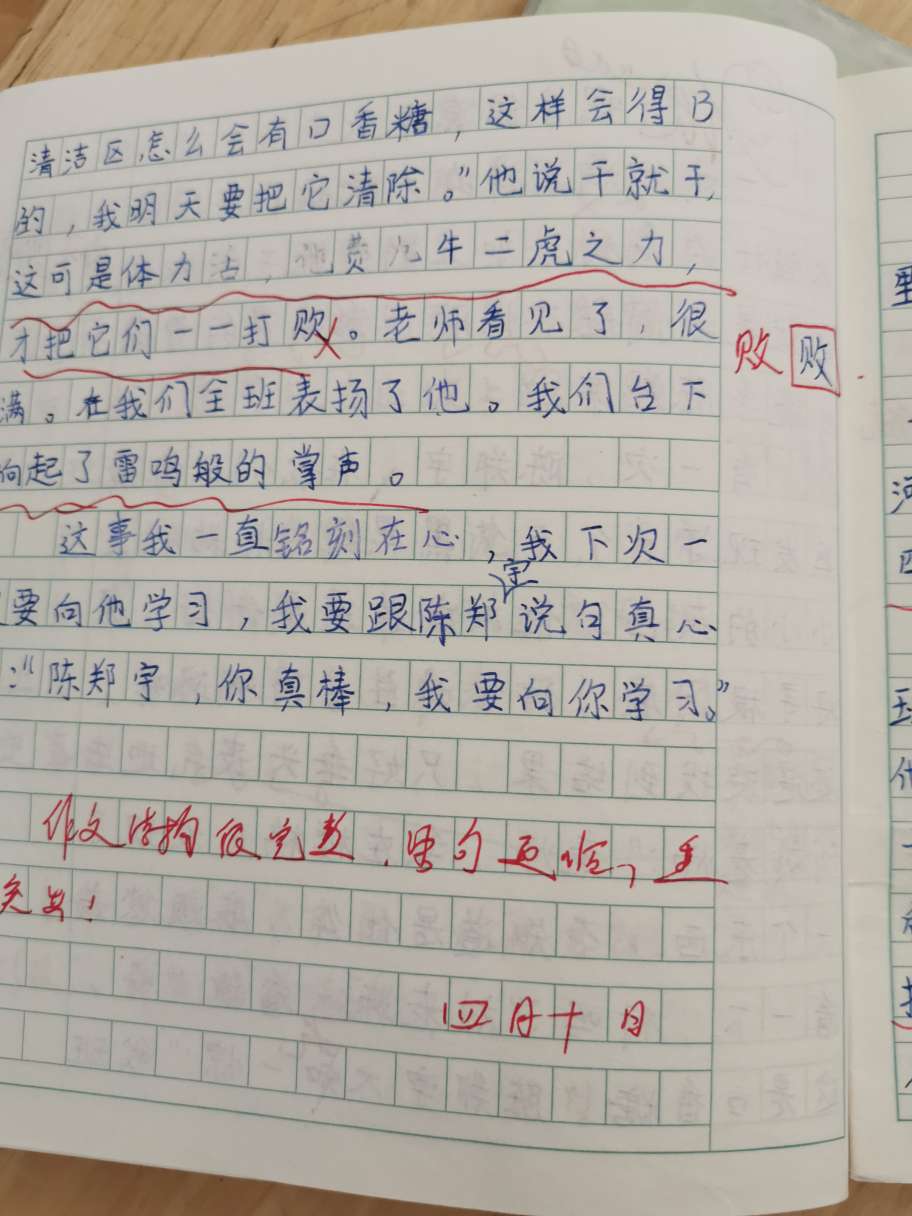 清洁区怎么会有口香糖，这样会得B
的，我明天要把它清除。”他说干就干，
这可是体力活，他费九牛二虎之力，
才把它们一一打败。老师看见了，很
败 败
满。在我们全班表扬了他。我们台下
响起了雷鸣般的掌声。
这事我一直铭刻在心，我下次一
要向他学习，我要跟陈郑宇说句真心
：“陈郑宇，你真棒，我要向你学习。”
作文结构很完整，
四月十日